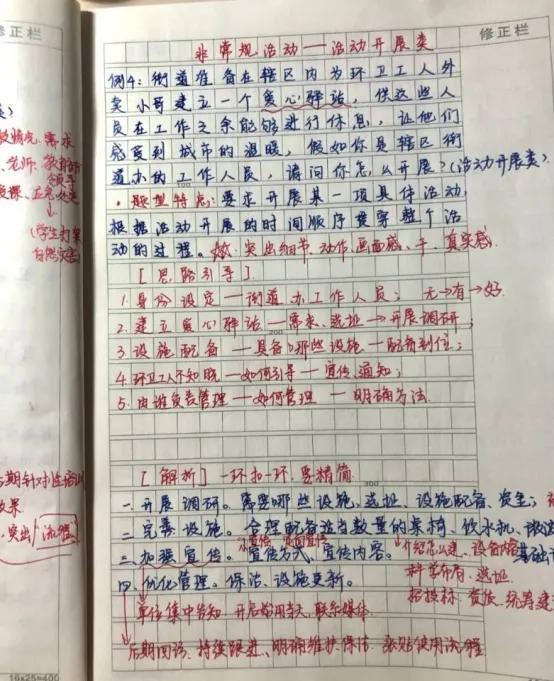 修正栏
修正栏
非常规活动——活动开展类
例4：街道准备在辖区内为环卫工人外
卖小哥建立一个爱心驿站，供这些人
员在工作之余能够进行休息，让他们
感受到城市的温暖，假如你是辖区街
道办的工作人员，请问你怎么开展？（活动开展类）
·题型特点：要求开展某一项具体活动，
根据活动开展的时间顺序贯穿整个活
动的过程。突出细节、动作、画面感、真实感.
［思路引导］
1.身份设定—街道办工作人员； 无→有→好.
2.建立爱心驿站—需求、选址→开展调研；
3.设施配备—具备哪些设施—配备到位；
4.环卫工人不知晓—如何引导—宣传、通知；
5.由谁负责管理—如何管理—明确方法.
［解析］一环扣一环.要精简.
一.开展调研。需要哪些设施、选址、设施配备、资金，
二.完善设施。合理配备适当数量的桌椅、饮水机、
三.加强宣传。宣传方式、宣传内容。
介绍怎么建、设备内容 基础
四.优化管理。保洁、设施更新。
科学布局、选址.
招投标、资质、统筹建
单位集中告知 开启始用来 联系媒体
后期回访、持续跟进、明确维护保洁 张贴使用流程
需求
老师、教辅
领导
(学生打架
自然灾害)
后期针对性培训
效果
突出「流程」
16×25=400